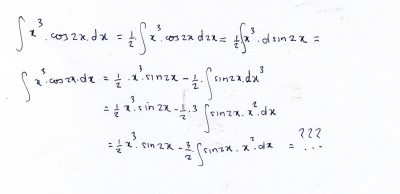 ∫x³.cos2x.dx = 1/2.∫x³.cos2x d2x = 1/2∫x³.dsin2x =
∫x³.cos2x.dx = 1/2.x³.sin2x - 1/2.∫sin2x.dx³
= 1/2x³.sin2x - 1/2.3∫sin2x.x².dx
= 1/2x³.sin2x - 3/2.∫sin2x.x².dx = ...
???